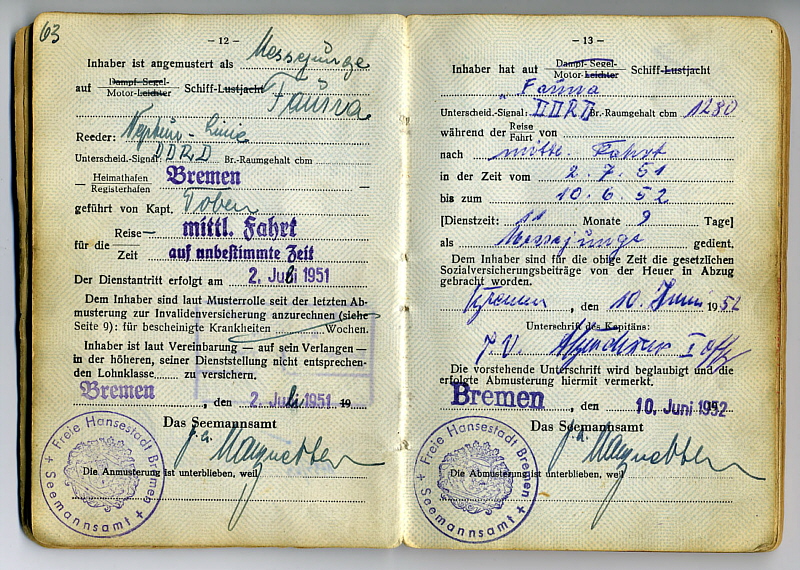 63
– 12 –
Inhaber ist angemustert als Messejunge
auf Dampf-Segel- Motor-Leichter Schiff-Lustjacht Fauna
Reeder: Neptun-Linie
Unterscheid.-Signal: DDRD Br.-Raumgehalt cbm
Heimathafen Registerhafen Bremen
geführt von Kapt. Toben
für die Reise— Zeit mittl. Fahrt
auf unbestimmte Zeit
Der Dienstantritt erfolgt am 2. Juli 1951
Dem Inhaber sind laut Musterrolle seit der letzten Ab-
musterung zur Invalidenversicherung anzurechnen (siehe
Seite 9): für bescheinigte Krankheiten Wochen.
Inhaber ist laut Vereinbarung — auf sein Verlangen —
in der höheren, seiner Dienststellung nicht entsprechen-
den Lohnklasse zu versichern.
Bremen, den 2. Juli 1951 19
Das Seemannsamt
Die Anmusterung ist unterblieben, weil
Freie Hansestadt Bremen
+ Seemannsamt +
– 13 –
Inhaber hat auf Dampf-Segel- Motor-Leichter Schiff-Lustjacht
„Fauna
Unterscheid.-Signal: DDRD Br.-Raumgehalt cbm 1280
während der Reise Fahrt von
nach mittl. Fahrt
in der Zeit vom 2.7.51
bis zum 10.6.52
[Dienstzeit: 11 Monate 9 Tage]
als Messejunge gedient.
Dem Inhaber sind für die obige Zeit die gesetzlichen
Sozialversicherungsbeiträge von der Heuer in Abzug
gebracht worden.
Bremen, den 10. Juni 1952
Unterschrift des Kapitäns:
J.V. I Offz
Die vorstehende Unterschrift wird beglaubigt und die
erfolgte Abmusterung hiermit vermerkt.
Bremen, den 10. Juni 1952
Das Seemannsamt
Die Abmusterung ist unterblieben, weil
Freie Hansestadt Bremen
+ Seemannsamt +